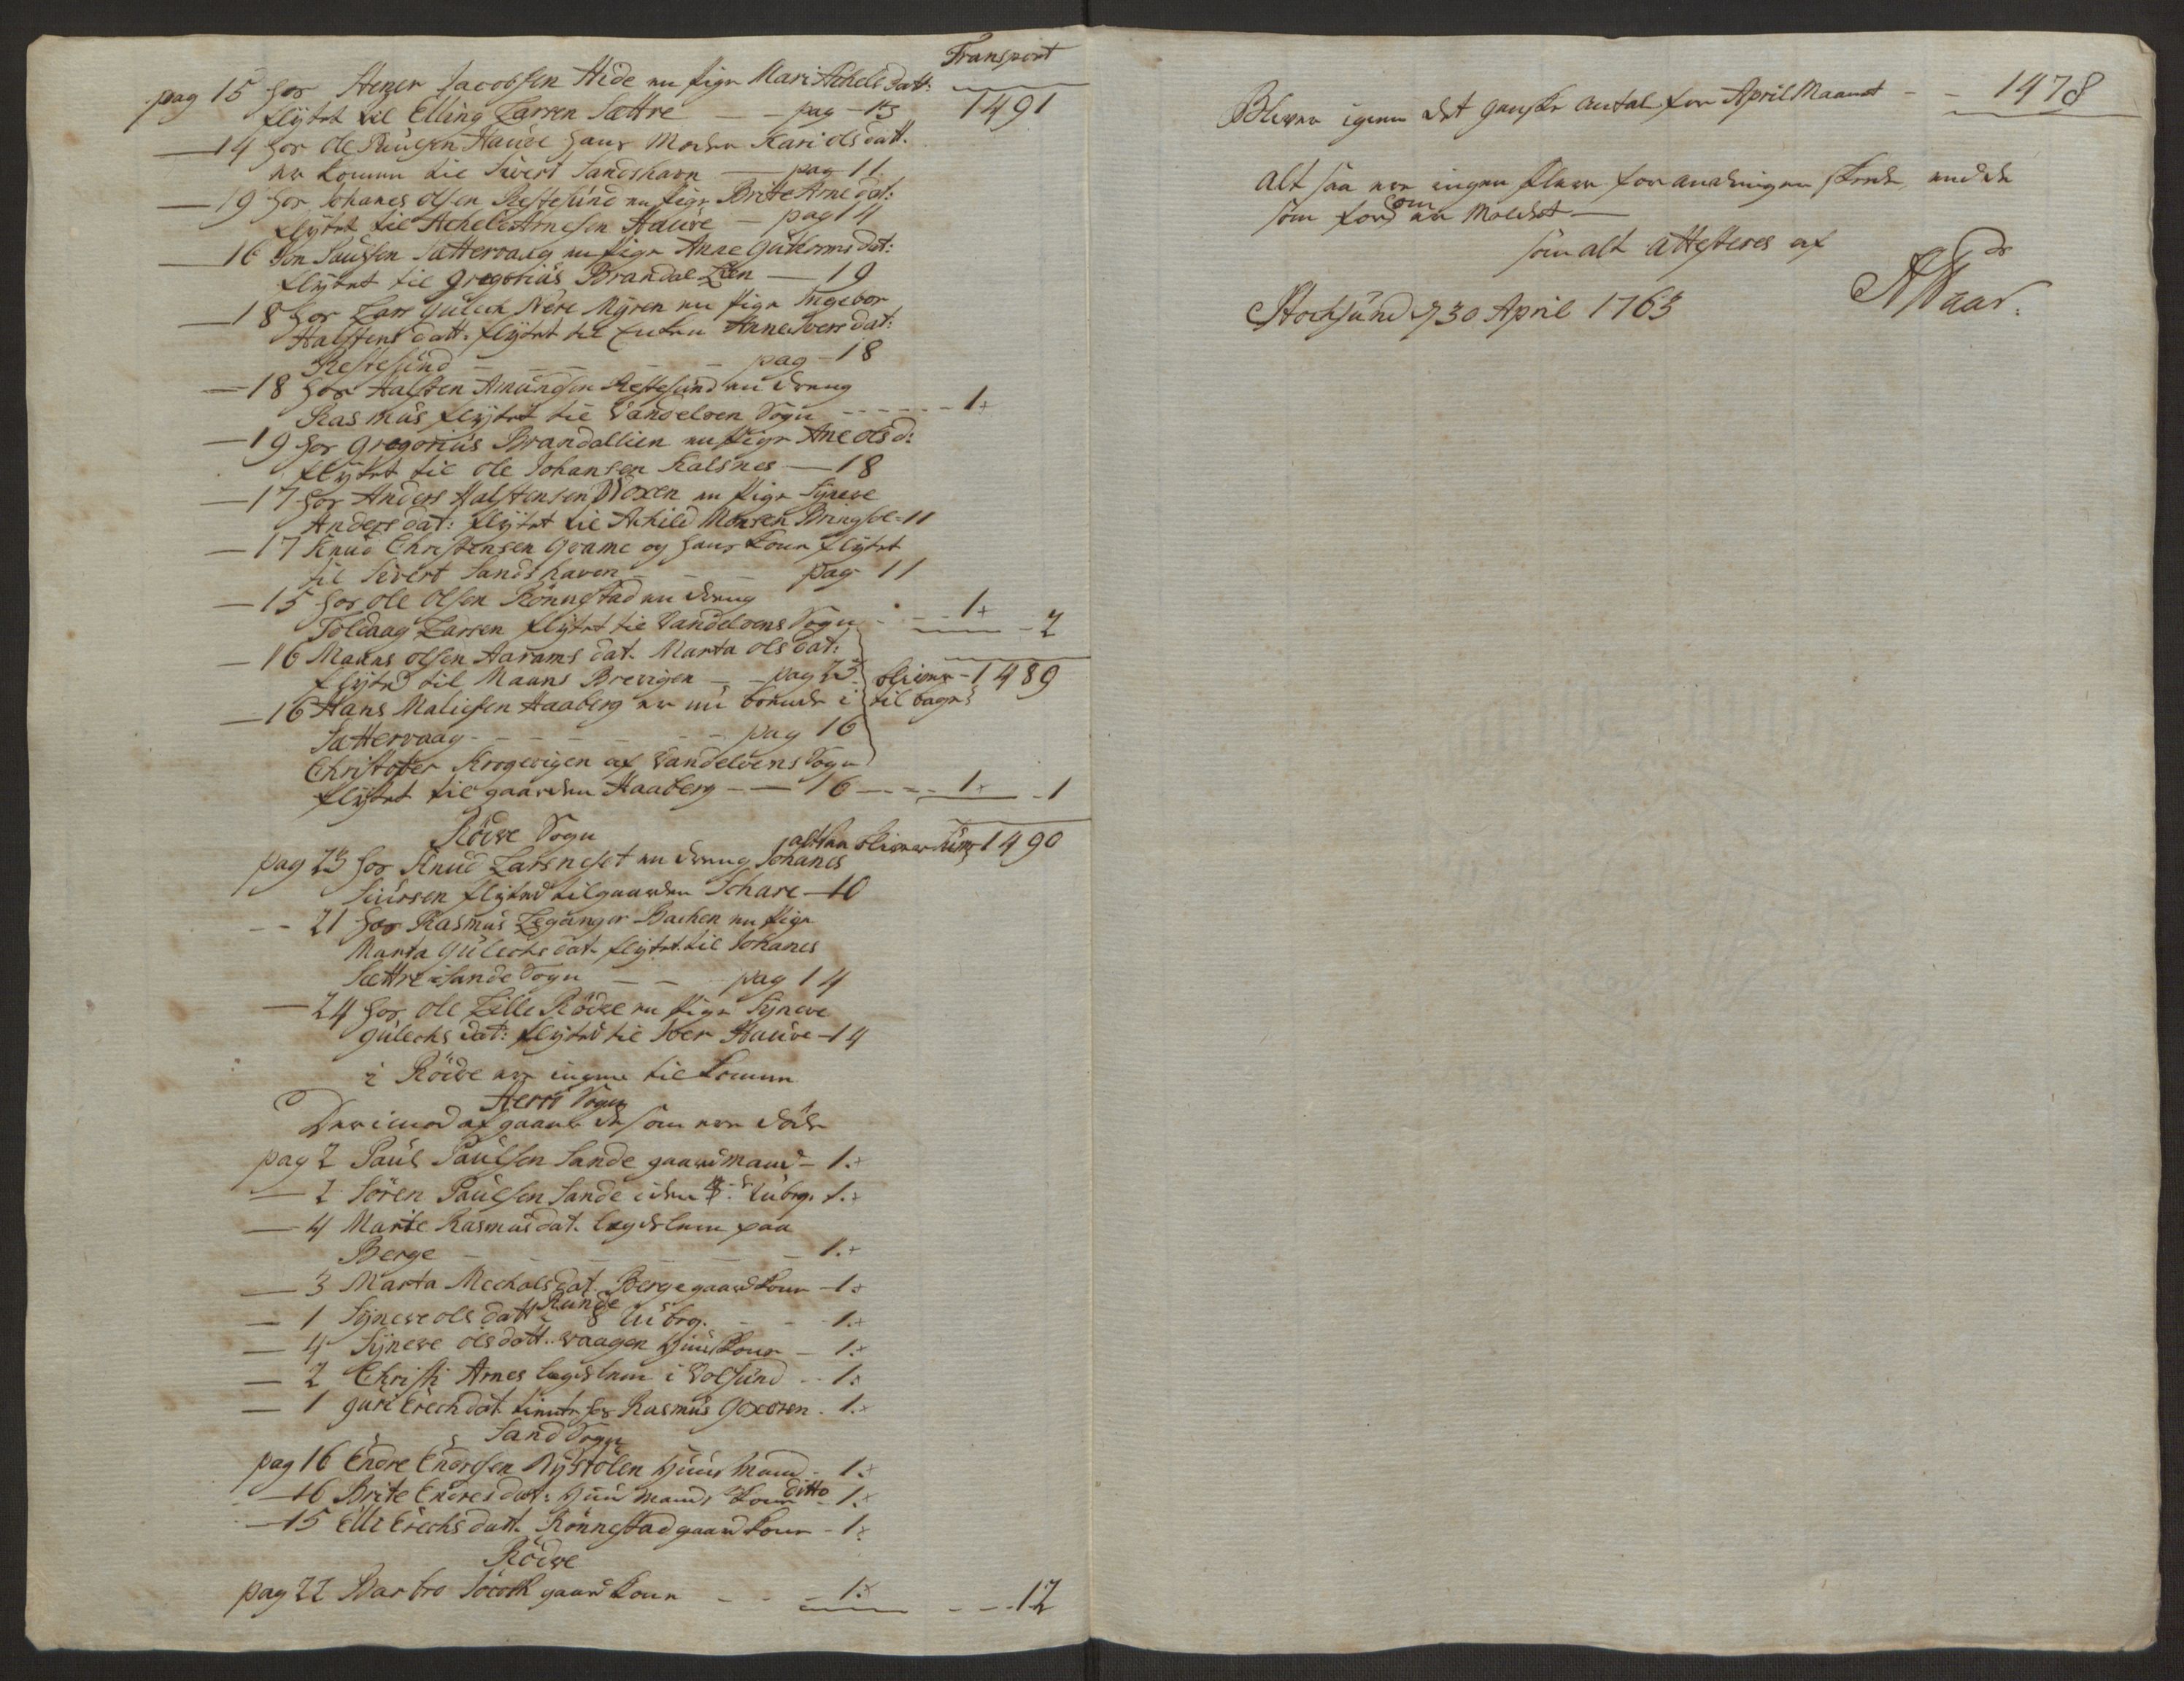 Transport
pag 15 hos Stener Jacobsen Hide en pige Mari Achels dat:
flÿtet til Elling Larsen Sættre — — pag — 15 1491
— 14 hos Ole Knudsen Hauge hans Moder Kari olsdatt.
er komen til Sivert Sandshavn — pag 11
— 19 hos Johanes olsen Røstesund en pige Brite Arne dat:
flÿtet til Achele Arnesen Hauge — pag 14
— 16 Jon Paulsen Sættervaag en pige Anne Guttorms dat:
flÿtet til Gregorius Brandal Lien — 19
— 18 hos Lars Gulich Nere Mÿren en pige Ingebor
Halstens datt. flÿtet til Enken Anne Ivers dat:
Røstesund — — — — pag — 18
— 18 hos Halsten Amundsen Røstesund en dreng
Rasmus flÿttet til Vandelven Sogn - - - - - - 1+
— 19 hos Gregorius Brandallien en pige Ane ols d:
flÿtet til Ole Johansen Kalsnes — 18
— 17 hos Anders Halstensen Moxen en pige Sÿneve
Anders dat: flÿtet til Achild Monsen Bringsvæ - 11
— 17 Knud Christensen Goxame og hans kone flÿtet
til Sivert Sandshaven — — — pag 11
— 15 hos Ole Olsen Rönnestad en dreng
Toldaag Larsen flÿtet til Vandelvens Sogn - - - 1+ — 2
— 16 Mauns olsen Aarams dat. Marta ols dat:
flÿted til Mauns Brevigen — — pag 23 bliver - 1489
— 16 Hans Maliesen Haaberg er nu boende i til bages
Sættervaag - - - - - - pag 16
Christofer Krogevigen af Vandelvens Sogn
flÿtet til gaarden Haaberg — — 16 — - - 1+ - 1
Röive Sogn
altsaa bliver Sum 1490
pag 23 hos Knud Larsneset en dreng Johanes
Siursen flÿted til gaarden Schare — 10
- - 21 hos Rasmus Leganger Bachen en pige
Marta Gulichs dat. flÿtet til Johanes
Sættre i Sande Sogn — — pag 14
— 24 hos Ole Lille Röive en pige Sÿneve
Gulechs dat: flÿted til Iver Hauge — 14
i Röive er ingen til komen
Herrö Sogn
Derimod afgaaet de som ere döde
pag 2 Paul Paulsen Sande gaardmand — 1.+
— 2 Sören Paulsen Sande i den 4de Tübrg. 1.+
— 4 Marte Rasmusdat. legdslem paa
Berge — — — — — 1.+
— 3 Marta Mechalsdat Berge gaardkone — 1+
— 1 Sÿneve ols datt Runde 8 Tübrg. - - - 1.+
— 4 Sÿneve olsdatt. Vaagen Huuskone — 1.+
— 2 Christi Arnes legdslem i Volsund - - 1+
— 1 Guri Erech dat tiente hos Rasmus Goxören - 1.+
Sand Sogn
pag 16 Endre Endresen Nÿstölen Huus mand — 1.+
— 16 Brite Endresdat: Huus mands kone ditto — 1.+
— 15 Elli Erechs datt. Rönnestad gaardkone — 1+
Röive
pag 22 Barbro gaardkone — — 1+ - - - 12
Bliver igien det gandske antal for April Maanet — — 1478
alt saa er ingen flere forandringer skede, end de
som foran om er Meldet —
som alt attesteres af
Stochsund d 30 April 1763